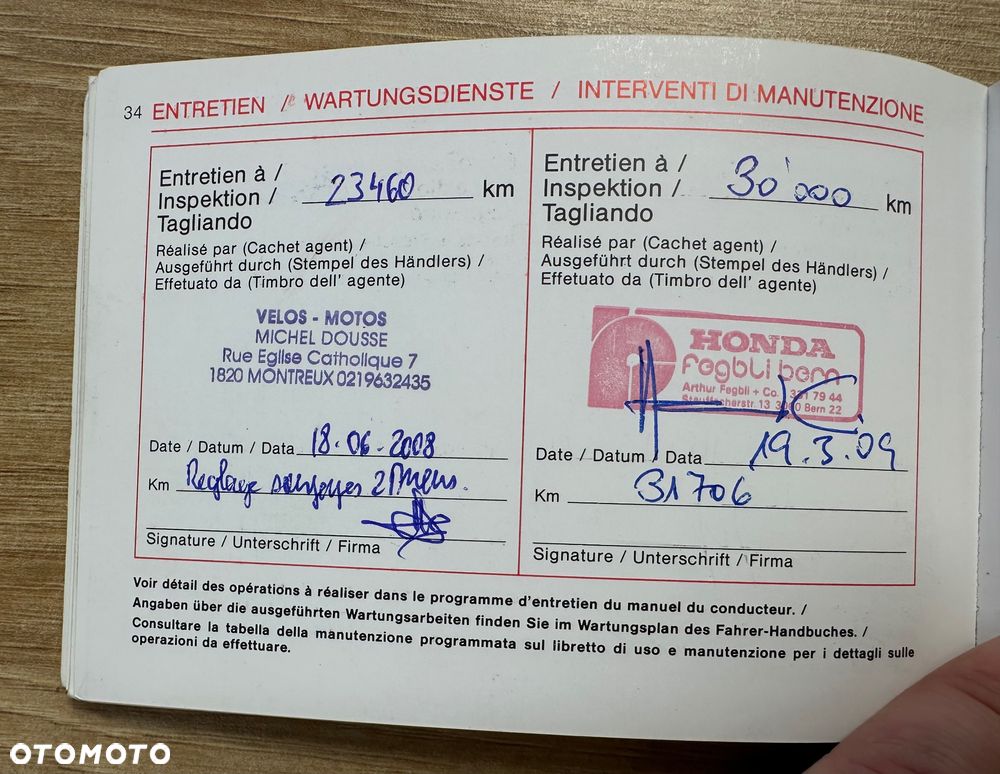 34 ENTRETIEN / WARTUNGSDIENSTE / INTERVENTI DI MANUTENZIONE
Entretien à /
Inspektion / 23460 km
Tagliando
Réalisé par (Cachet agent) /
Ausgeführt durch (Stempel des Händlers) /
Effetuato da (Timbro dell' agente)
VELOS - MOTOS
MICHEL DOUSSE
Rue Eglise Catholique 7
1820 MONTREUX 0219632435
Date / Datum / Data 18.06.2008
Km Reglage 2 Pneus.
Signature / Unterschrift / Firma
Entretien à /
Inspektion / 30'000 km
Tagliando
Réalisé par (Cachet agent) /
Ausgeführt durch (Stempel des Händlers) /
Effetuato da (Timbro dell' agente)
HONDA
Fegbli bern
Arthur Fegbli + Co. 331 79 44
Stauffacherstr. 13 3000 Bern 22
Date / Datum / Data 19.3.09
Km 31706
Signature / Unterschrift / Firma
Voir détail des opérations à réaliser dans le programme d'entretien du manuel du conducteur. /
Angaben über die ausgeführten Wartungsarbeiten finden Sie im Wartungsplan des Fahrer-Handbuches. /
Consultare la tabella della manutenzione programmata sul libretto di uso e manutenzione per i dettagli sulle
operazioni da effettuare.
OTOMOTO